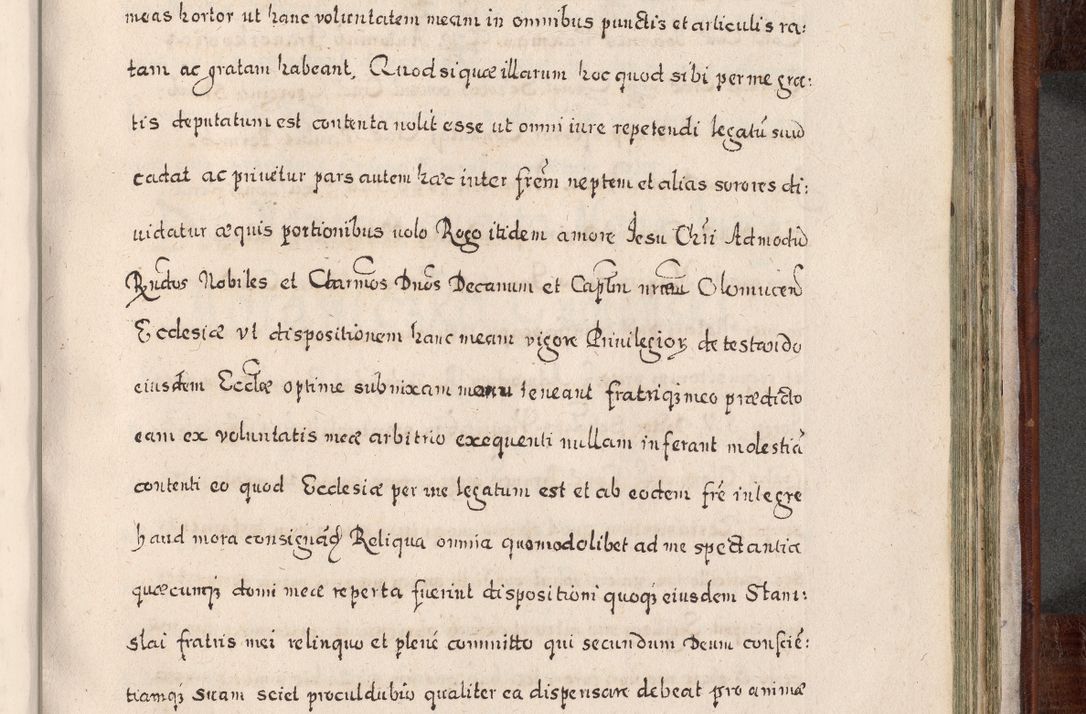 meas hortor ut hanc voluntatem meam in omnibus punctis et articulis ra:
tam ac gratam habeant, Quod si quæ illarum hoc quod sibi per me gra:
tis deputatum est contenta nolit esse ut omni iure repetendi legatũ suũ
cadat ac priuetur pars autem hæc inter frẽm neptem et alias sorores di:
uidatur æquis portionibus uolo Rogo itidem amore Jesu Chri̇̃ Admodũ
Rṇdos Nobiles et Clarmos Dnos Decanum et Captm nrm Olomucen
Ecclesiæ vt dispositionem hanc meam vigore Priuilegioꝝ de testando
eiusdem Eccłæ optime subnixam manu teneant fratriqꝫ meo prædicto
eam ex voluntatis meæ arbitrio exequenti nullam inferant molestiã
contenti eo quod Ecclesiæ per me legatum est et ab eodem frẽ integre
haud mora consignãdũ Reliqua omnia quomodolibet ad me spectantia
quæcunqꝫ domi meæ reperta fuerint dispositioni quoqꝫ eiusdem Stani:
slai fratris mei relinquo et plene committo qui secundum Deum consciẽ:
tiamqꝫ suam sciet proculdubio qualiter ea dispensare debeat pro animæ